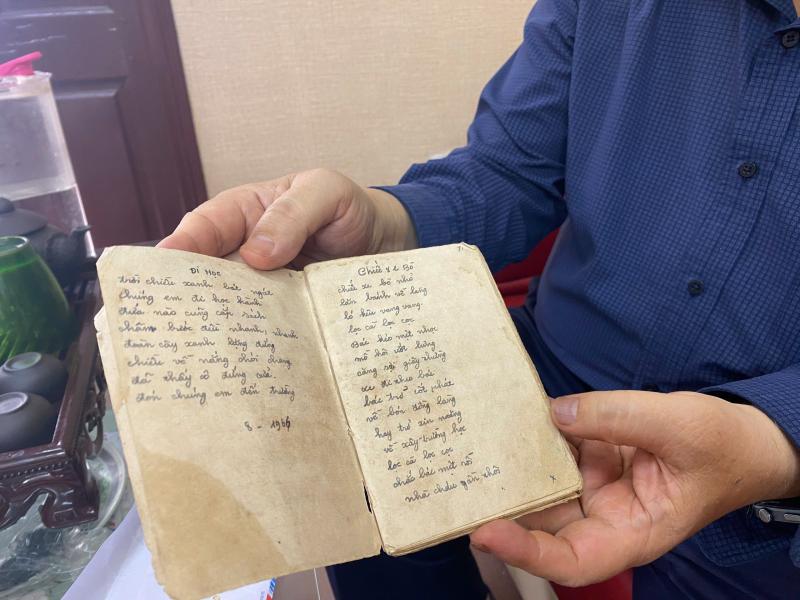 ĐI HỌC
trời chiều xanh bát ngát
Chúng em đi học hành
đứa nào cũng cắp sách
chân bước đều nhanh, nhanh
đoàn cây xanh lường đứng
chiều về nắng chói chang
đã thấy cô đứng
đón chúng em đến trường
8 - 1966
Chiếc xe Bò
chiếc xe bò nhỏ
lăn bánh về làng
ló hữu vang vang
lọc cà lọc cọc
Bác kéo mệt nhọc
mồ hôi ướt lưng
căng sợi giây thừng
xe đi theo bác
bác trở cót phát
về bón đồng làng
hay trở xin măng
về xây trường học
lọc cà lọc cọc
chắc bác mệt rồi
nhà cháu gần thôi